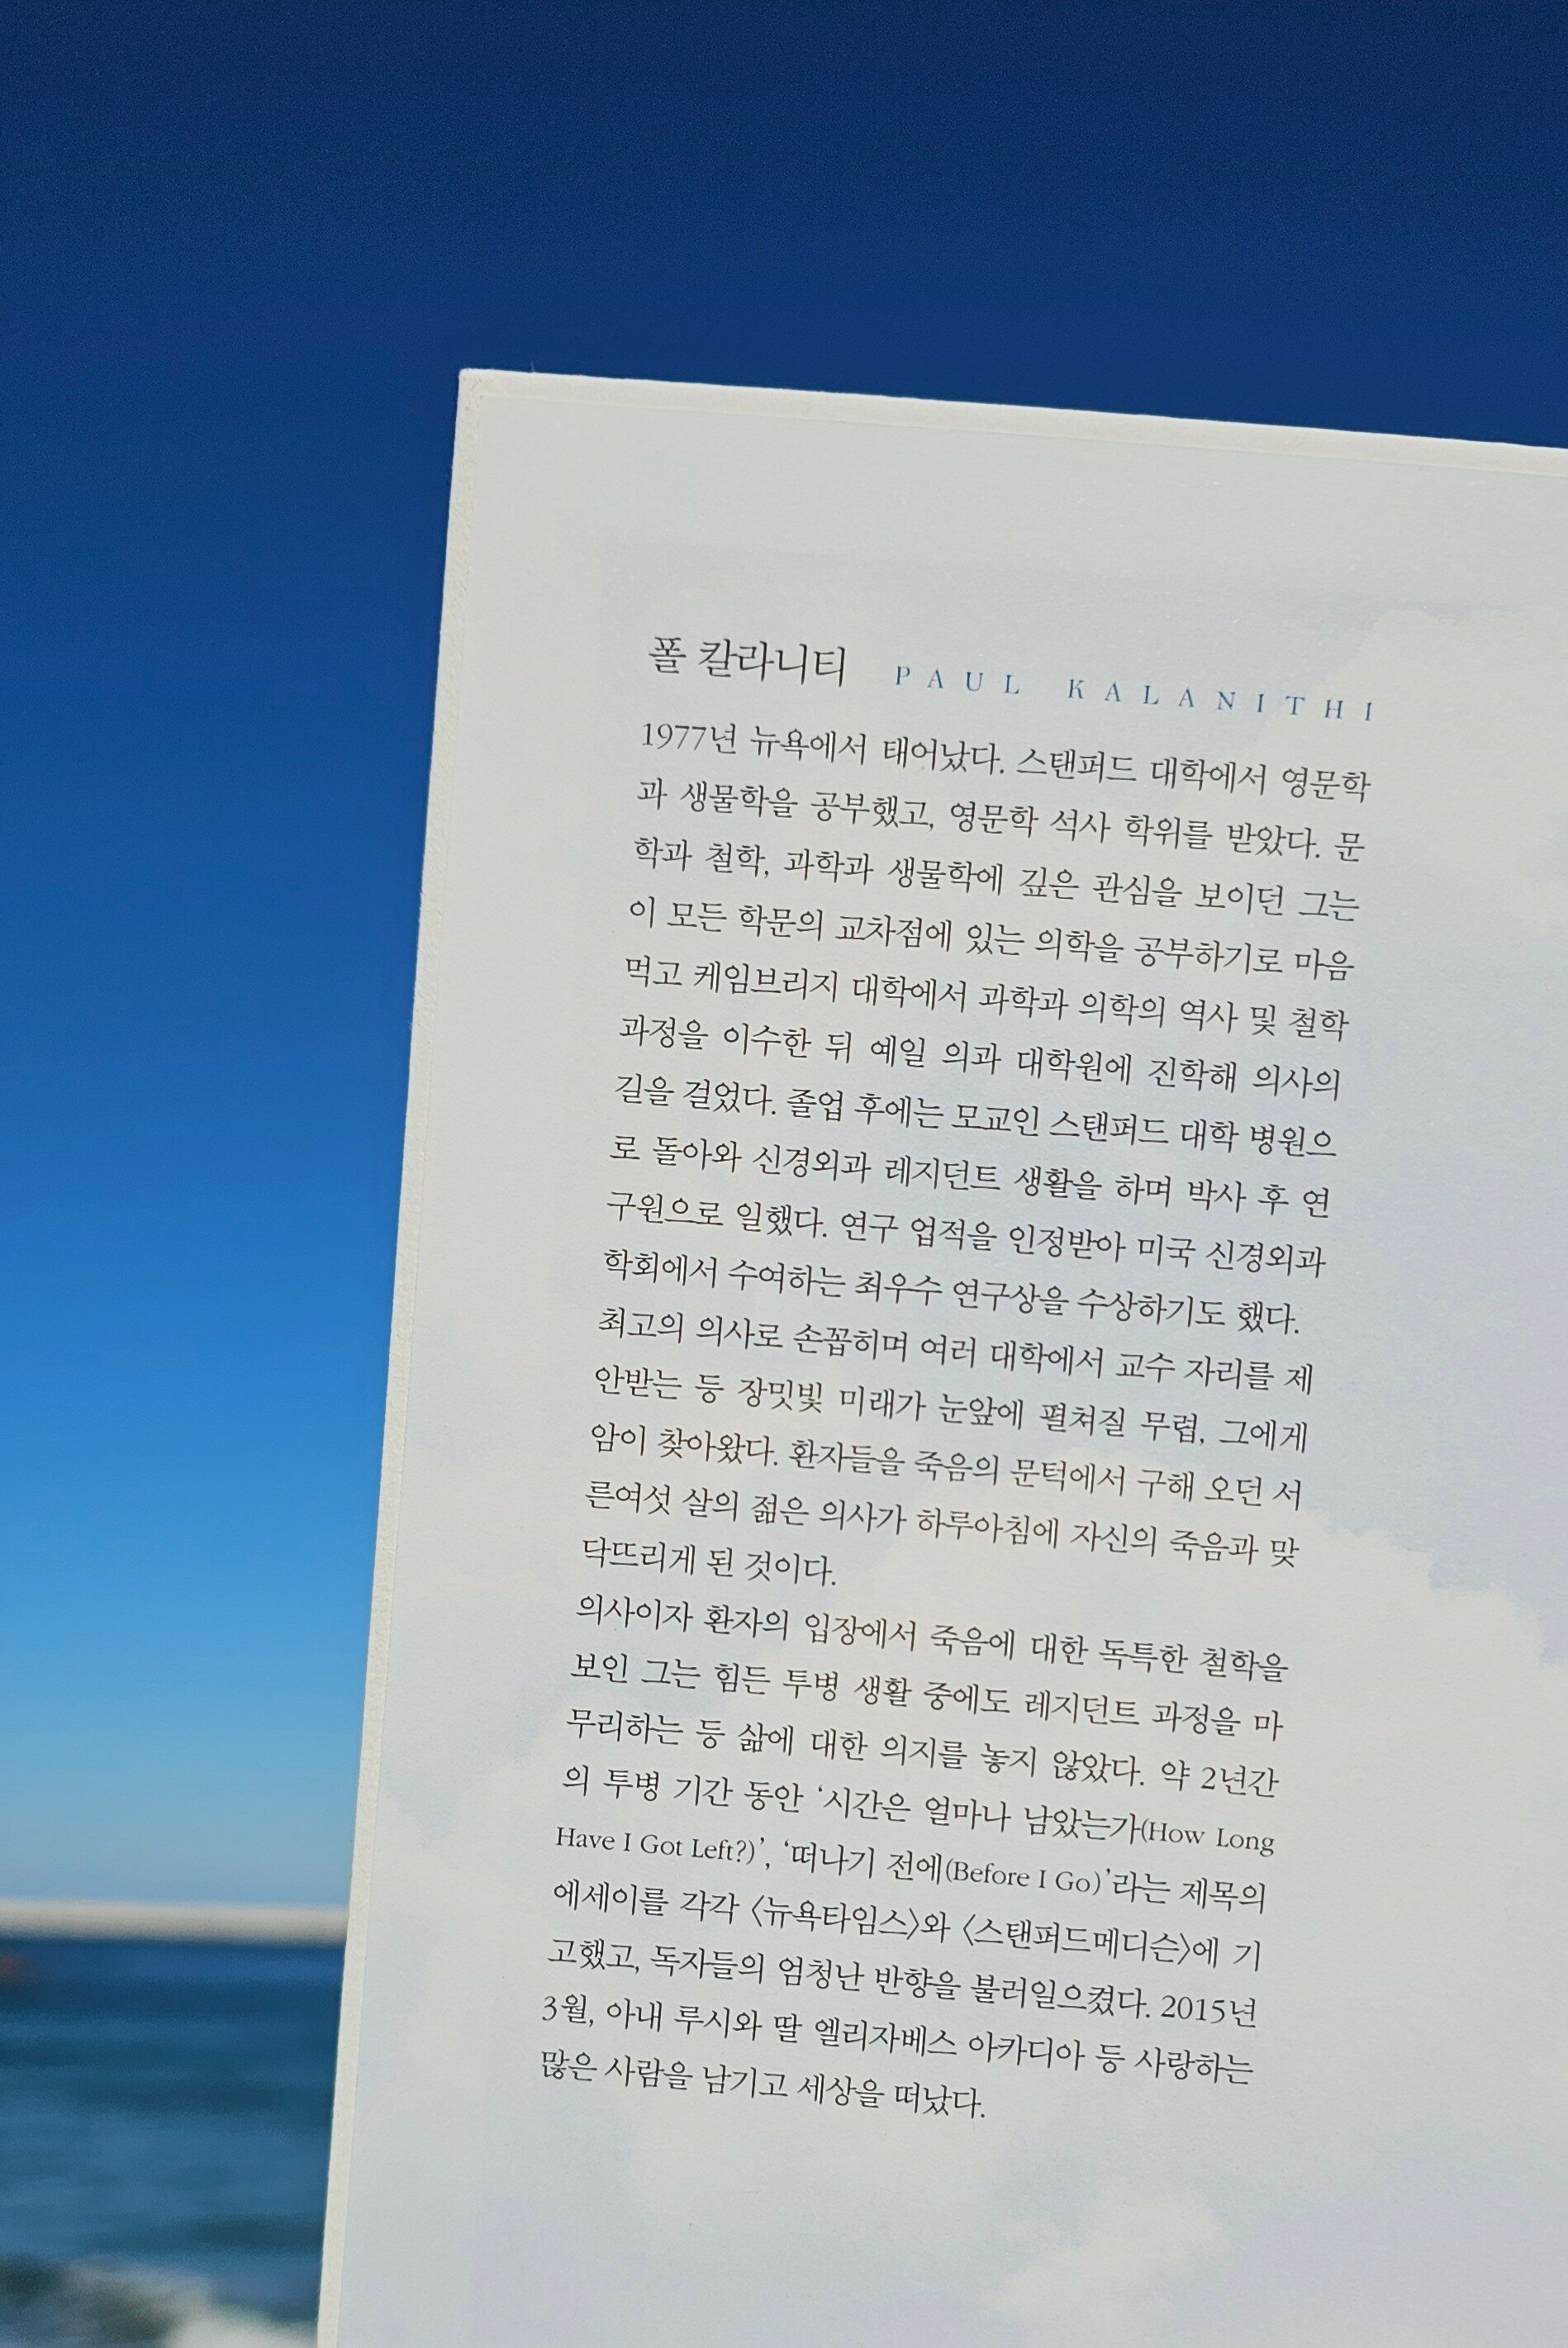 폴 칼라니티 PAUL KALANITHI
1977년 뉴욕에서 태어났다. 스탠퍼드 대학에서 영문학
과 생물학을 공부했고, 영문학 석사 학위를 받았다. 문
학과 철학, 과학과 생물학에 깊은 관심을 보이던 그는
이 모든 학문의 교차점에 있는 의학을 공부하기로 마음
먹고 케임브리지 대학에서 과학과 의학의 역사 및 철학
과정을 이수한 뒤 예일 의과 대학원에 진학해 의사의
길을 걸었다. 졸업 후에는 모교인 스탠퍼드 대학 병원으
로 돌아와 신경외과 레지던트 생활을 하며 박사 후 연
구원으로 일했다. 연구 업적을 인정받아 미국 신경외과
학회에서 수여하는 최우수 연구상을 수상하기도 했다.
최고의 의사로 손꼽히며 여러 대학에서 교수 자리를 제
안받는 등 장밋빛 미래가 눈앞에 펼쳐질 무렵, 그에게
암이 찾아왔다. 환자들을 죽음의 문턱에서 구해 오던 서
른여섯 살의 젊은 의사가 하루아침에 자신의 죽음과 맞
닥뜨리게 된 것이다.
의사이자 환자의 입장에서 죽음에 대한 독특한 철학을
보인 그는 힘든 투병 생활 중에도 레지던트 과정을 마
무리하는 등 삶에 대한 의지를 놓지 않았다. 약 2년간
의 투병 기간 동안 ‘시간은 얼마나 남았는가(How Long
Have I Got Left?)’, ‘떠나기 전에(Before I Go)’라는 제목의
에세이를 각각 〈뉴욕타임스〉와 〈스탠퍼드메디슨〉에 기
고했고, 독자들의 엄청난 반향을 불러일으켰다. 2015년
3월, 아내 루시와 딸 엘리자베스 아카디아 등 사랑하는
많은 사람을 남기고 세상을 떠났다.